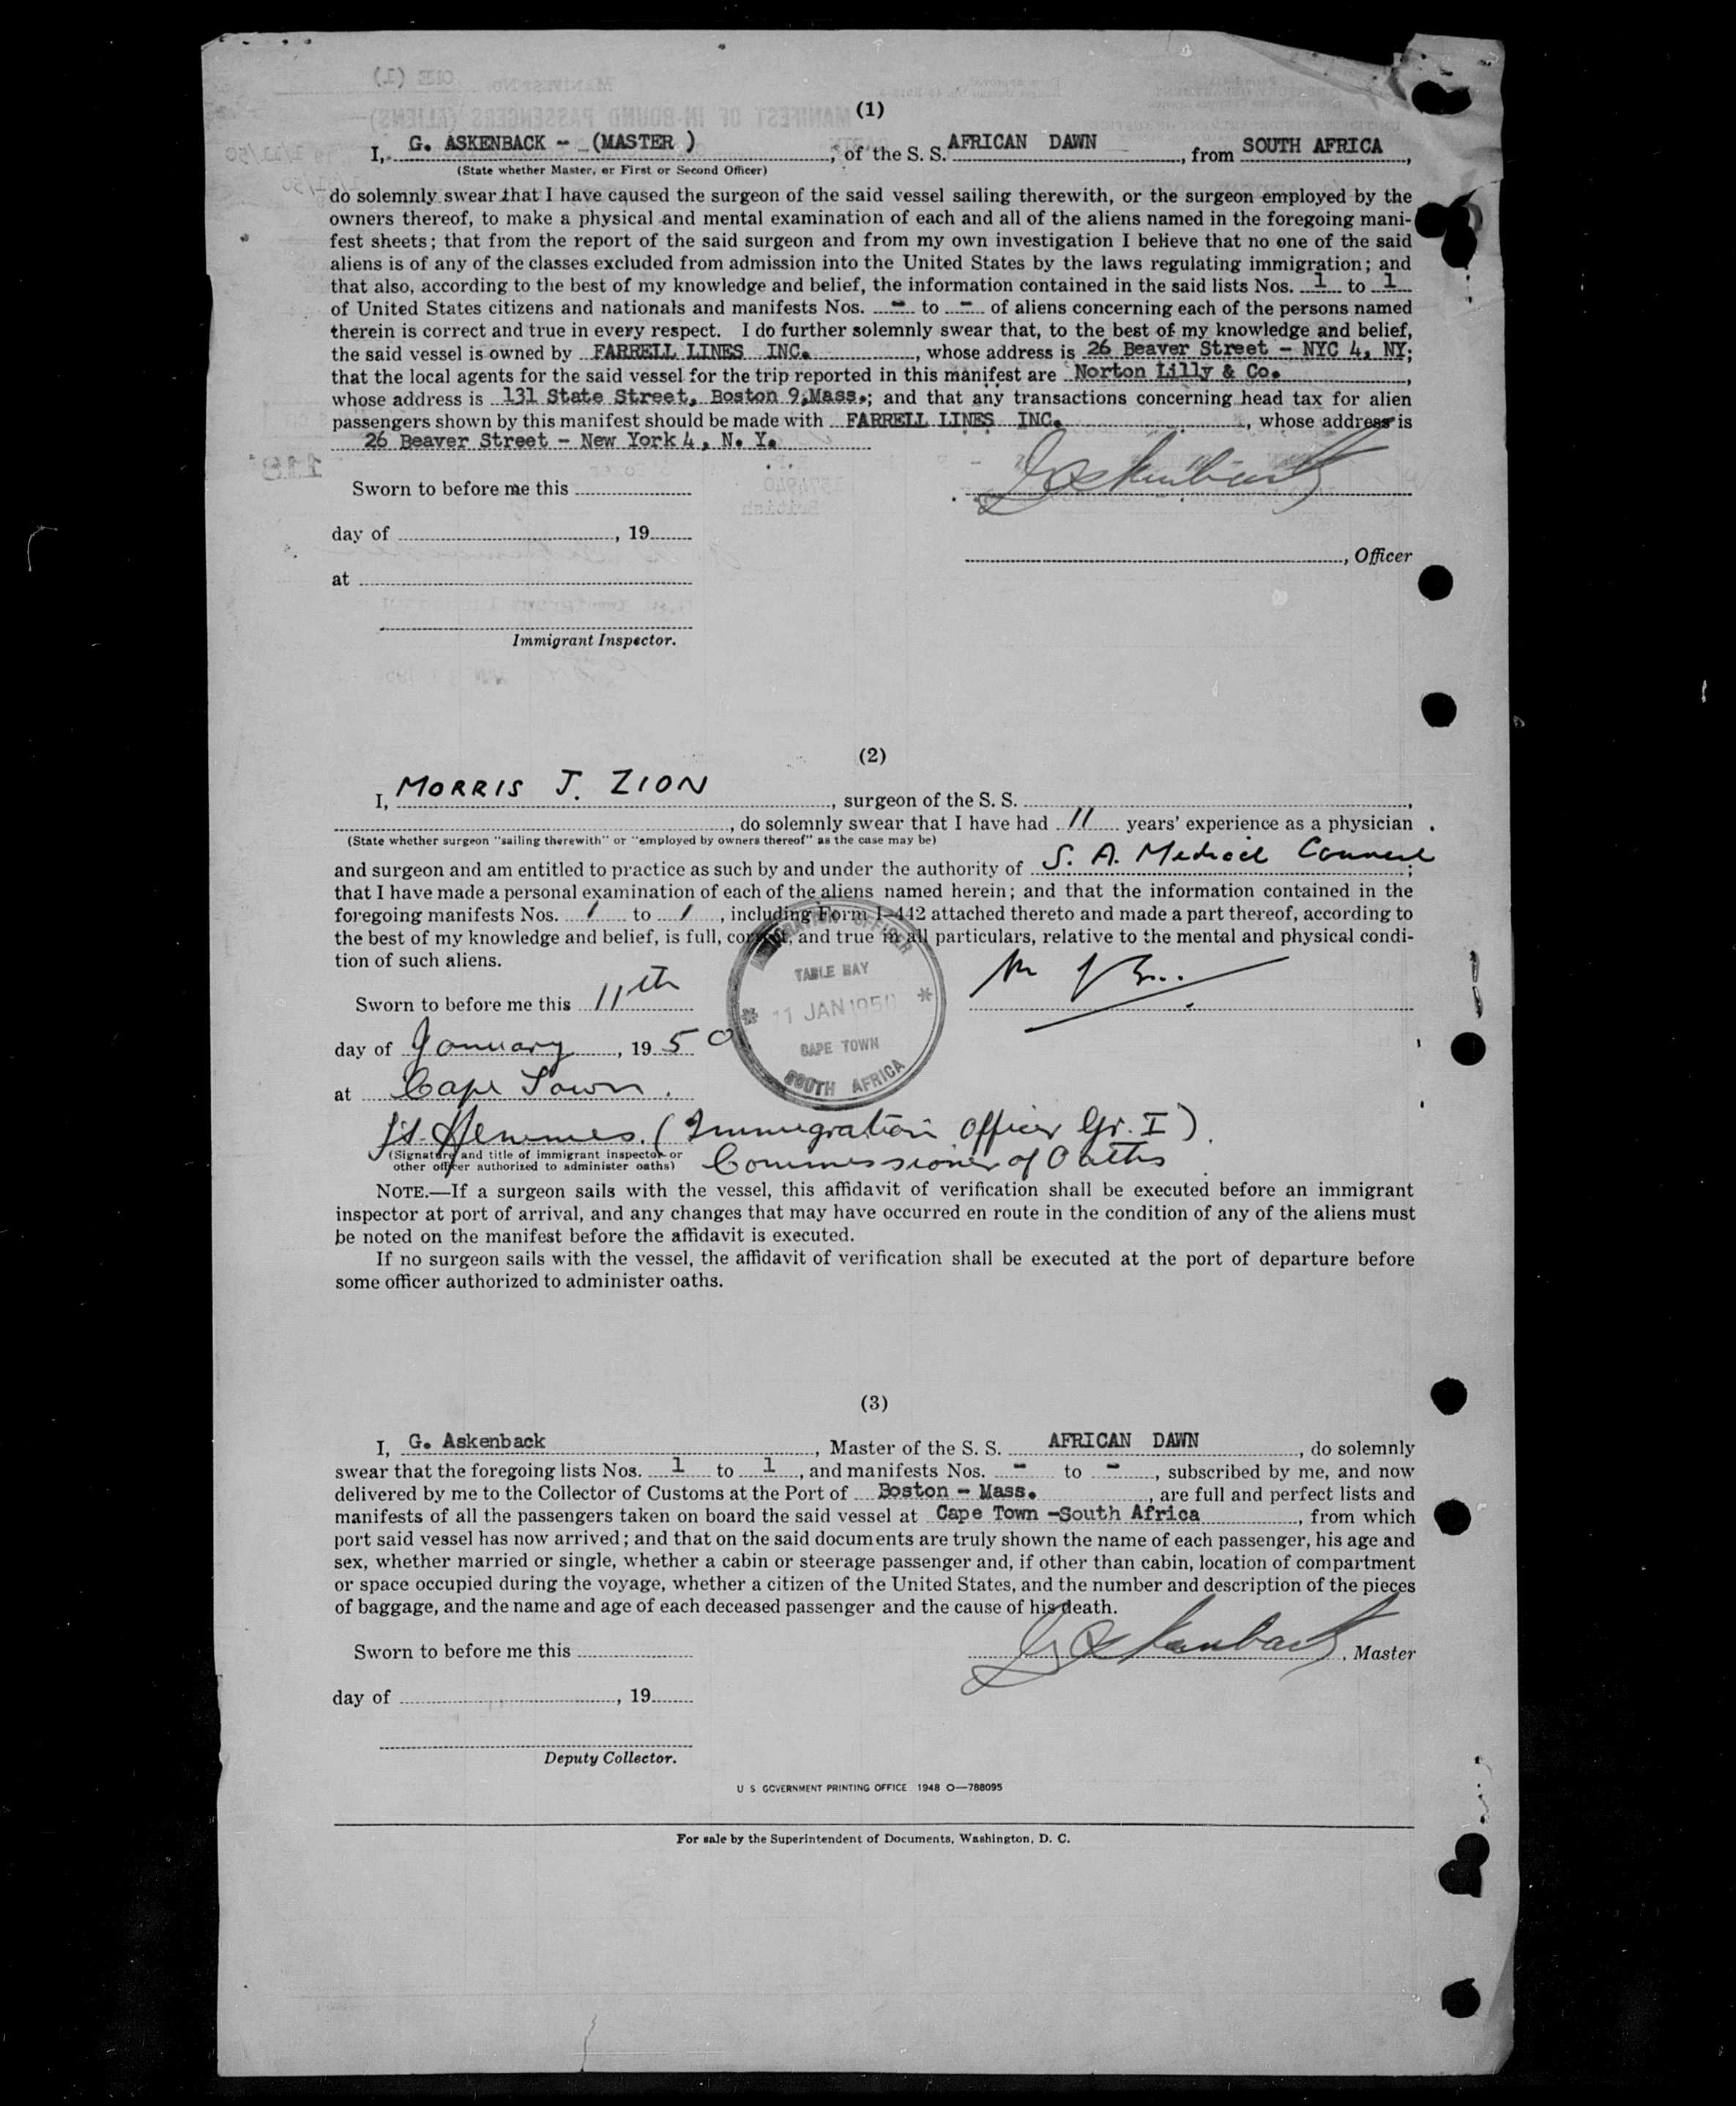 (1)
I, G. ASKENBACK - (MASTER ), of the S. S. AFRICAN DAWN, from SOUTH AFRICA,
(State whether Master, or First or Second Officer)
do solemnly swear that I have caused the surgeon of the said vessel sailing therewith, or the surgeon employed by the
owners thereof, to make a physical and mental examination of each and all of the aliens named in the foregoing mani-
fest sheets; that from the report of the said surgeon and from my own investigation I believe that no one of the said
aliens is of any of the classes excluded from admission into the United States by the laws regulating immigration; and
that also, according to the best of my knowledge and belief, the information contained in the said lists Nos. 1 to 1
of United States citizens and nationals and manifests Nos. - to - of aliens concerning each of the persons named
therein is correct and true in every respect. I do further solemnly swear that, to the best of my knowledge and belief,
the said vessel is owned by FARRELL LINES INC., whose address is 26 Beaver Street - NYC 4, NY;
that the local agents for the said vessel for the trip reported in this manifest are Norton Lilly & Co.,
whose address is 131 State Street, Boston 9, Mass.; and that any transactions concerning head tax for alien
passengers shown by this manifest should be made with FARRELL LINES INC., whose address is
26 Beaver Street - New York 4, N. Y.
Sworn to before me this
G Askenback
day of , 19
, Officer
at
Immigrant Inspector.
(2)
I, MORRIS J. ZION, surgeon of the S. S. ,
, do solemnly swear that I have had 11 years' experience as a physician
(State whether surgeon "sailing therewith" or "employed by owners thereof" as the case may be)
and surgeon and am entitled to practice as such by and under the authority of S. A. Medical Council;
that I have made a personal examination of each of the aliens named herein; and that the information contained in the
foregoing manifests Nos. 1 to 1, including Form I-442 attached thereto and made a part thereof, according to
the best of my knowledge and belief, is full, correct, and true in all particulars, relative to the mental and physical condi-
tion of such aliens.
IMMIGRATION OFFICER
TABLE BAY
11 JAN 1950
CAPE TOWN
SOUTH AFRICA
Sworn to before me this 11th
day of January, 1950
at Cape Town.
Hemmes. (Immigration Officer Gr. I).
(Signature and title of immigrant inspector or
other officer authorized to administer oaths)
Commissioner of Oaths
NOTE.—If a surgeon sails with the vessel, this affidavit of verification shall be executed before an immigrant
inspector at port of arrival, and any changes that may have occurred en route in the condition of any of the aliens must
be noted on the manifest before the affidavit is executed.
If no surgeon sails with the vessel, the affidavit of verification shall be executed at the port of departure before
some officer authorized to administer oaths.
(3)
I, G. Askenback, Master of the S. S. AFRICAN DAWN, do solemnly
swear that the foregoing lists Nos. 1 to 1, and manifests Nos. - to -, subscribed by me, and now
delivered by me to the Collector of Customs at the Port of Boston - Mass., are full and perfect lists and
manifests of all the passengers taken on board the said vessel at Cape Town -South Africa, from which
port said vessel has now arrived; and that on the said documents are truly shown the name of each passenger, his age and
sex, whether married or single, whether a cabin or steerage passenger and, if other than cabin, location of compartment
or space occupied during the voyage, whether a citizen of the United States, and the number and description of the pieces
of baggage, and the name and age of each deceased passenger and the cause of his death.
Sworn to before me this
G Askenback, Master
day of , 19
Deputy Collector.
U S GOVERNMENT PRINTING OFFICE 1948 O—788095
For sale by the Superintendent of Documents, Washington, D. C.